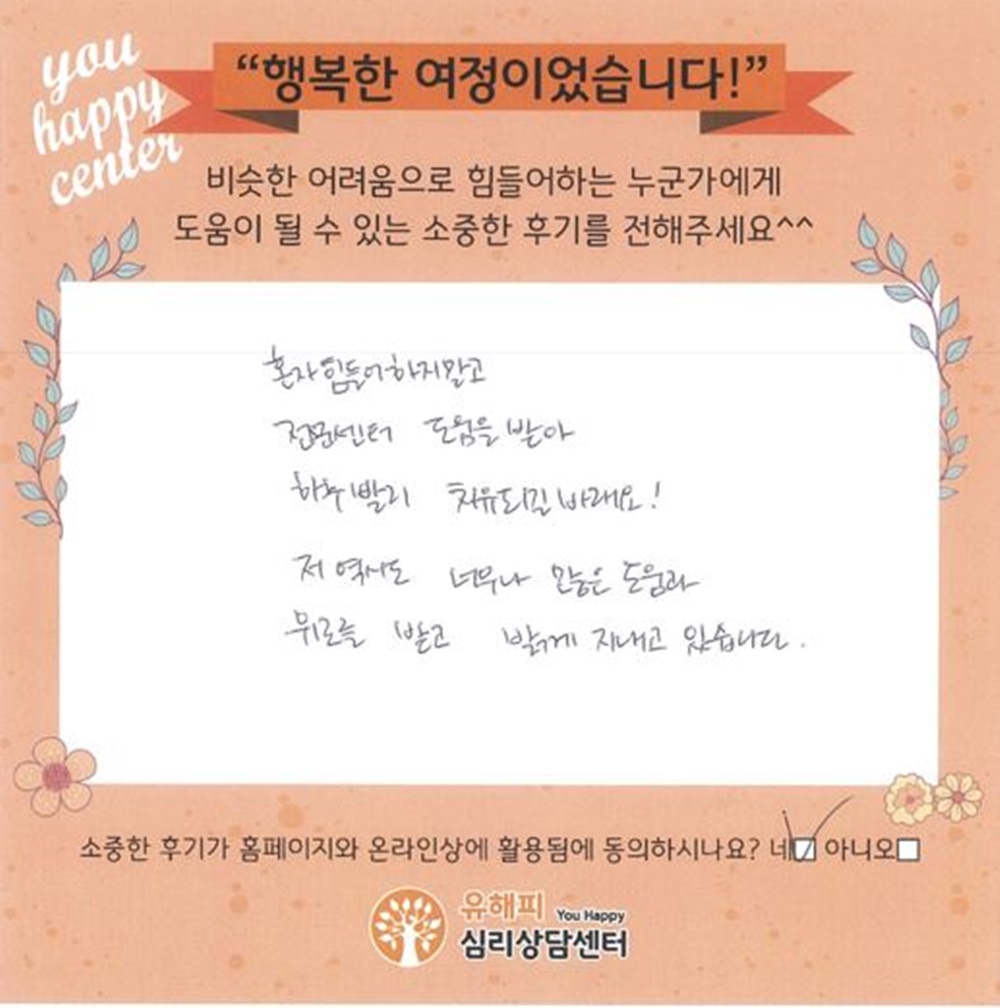 you
happy
center
“행복한 여정이었습니다!”
비슷한 어려움으로 힘들어하는 누군가에게
도움이 될 수 있는 소중한 후기를 전해주세요^^
혼자 힘들어하지말고
전문센터 도움을 받아
하루 빨리 치유되길 바래요!
저 역시도 너무나 많은 도움과
위로를 받고 밝게 지내고 있습니다.
소중한 후기가 홈페이지와 온라인상에 활용됨에 동의하시나요? 네☑ 아니오☐
유해피 You Happy
심리상담센터